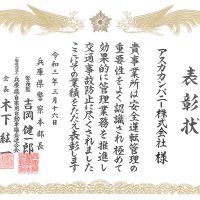 表彰状
アスカカンパニー株式会社 様
貴事業所は安全運転管理の
重要性をよく認識され極めて
効果的に管理業務を推進し
交通事故防止に尽くされました
ここにその業績をたたえ表彰します
令和三年三月十六日
兵庫県警察本部長
吉岡健一郎
会長 木下紘一